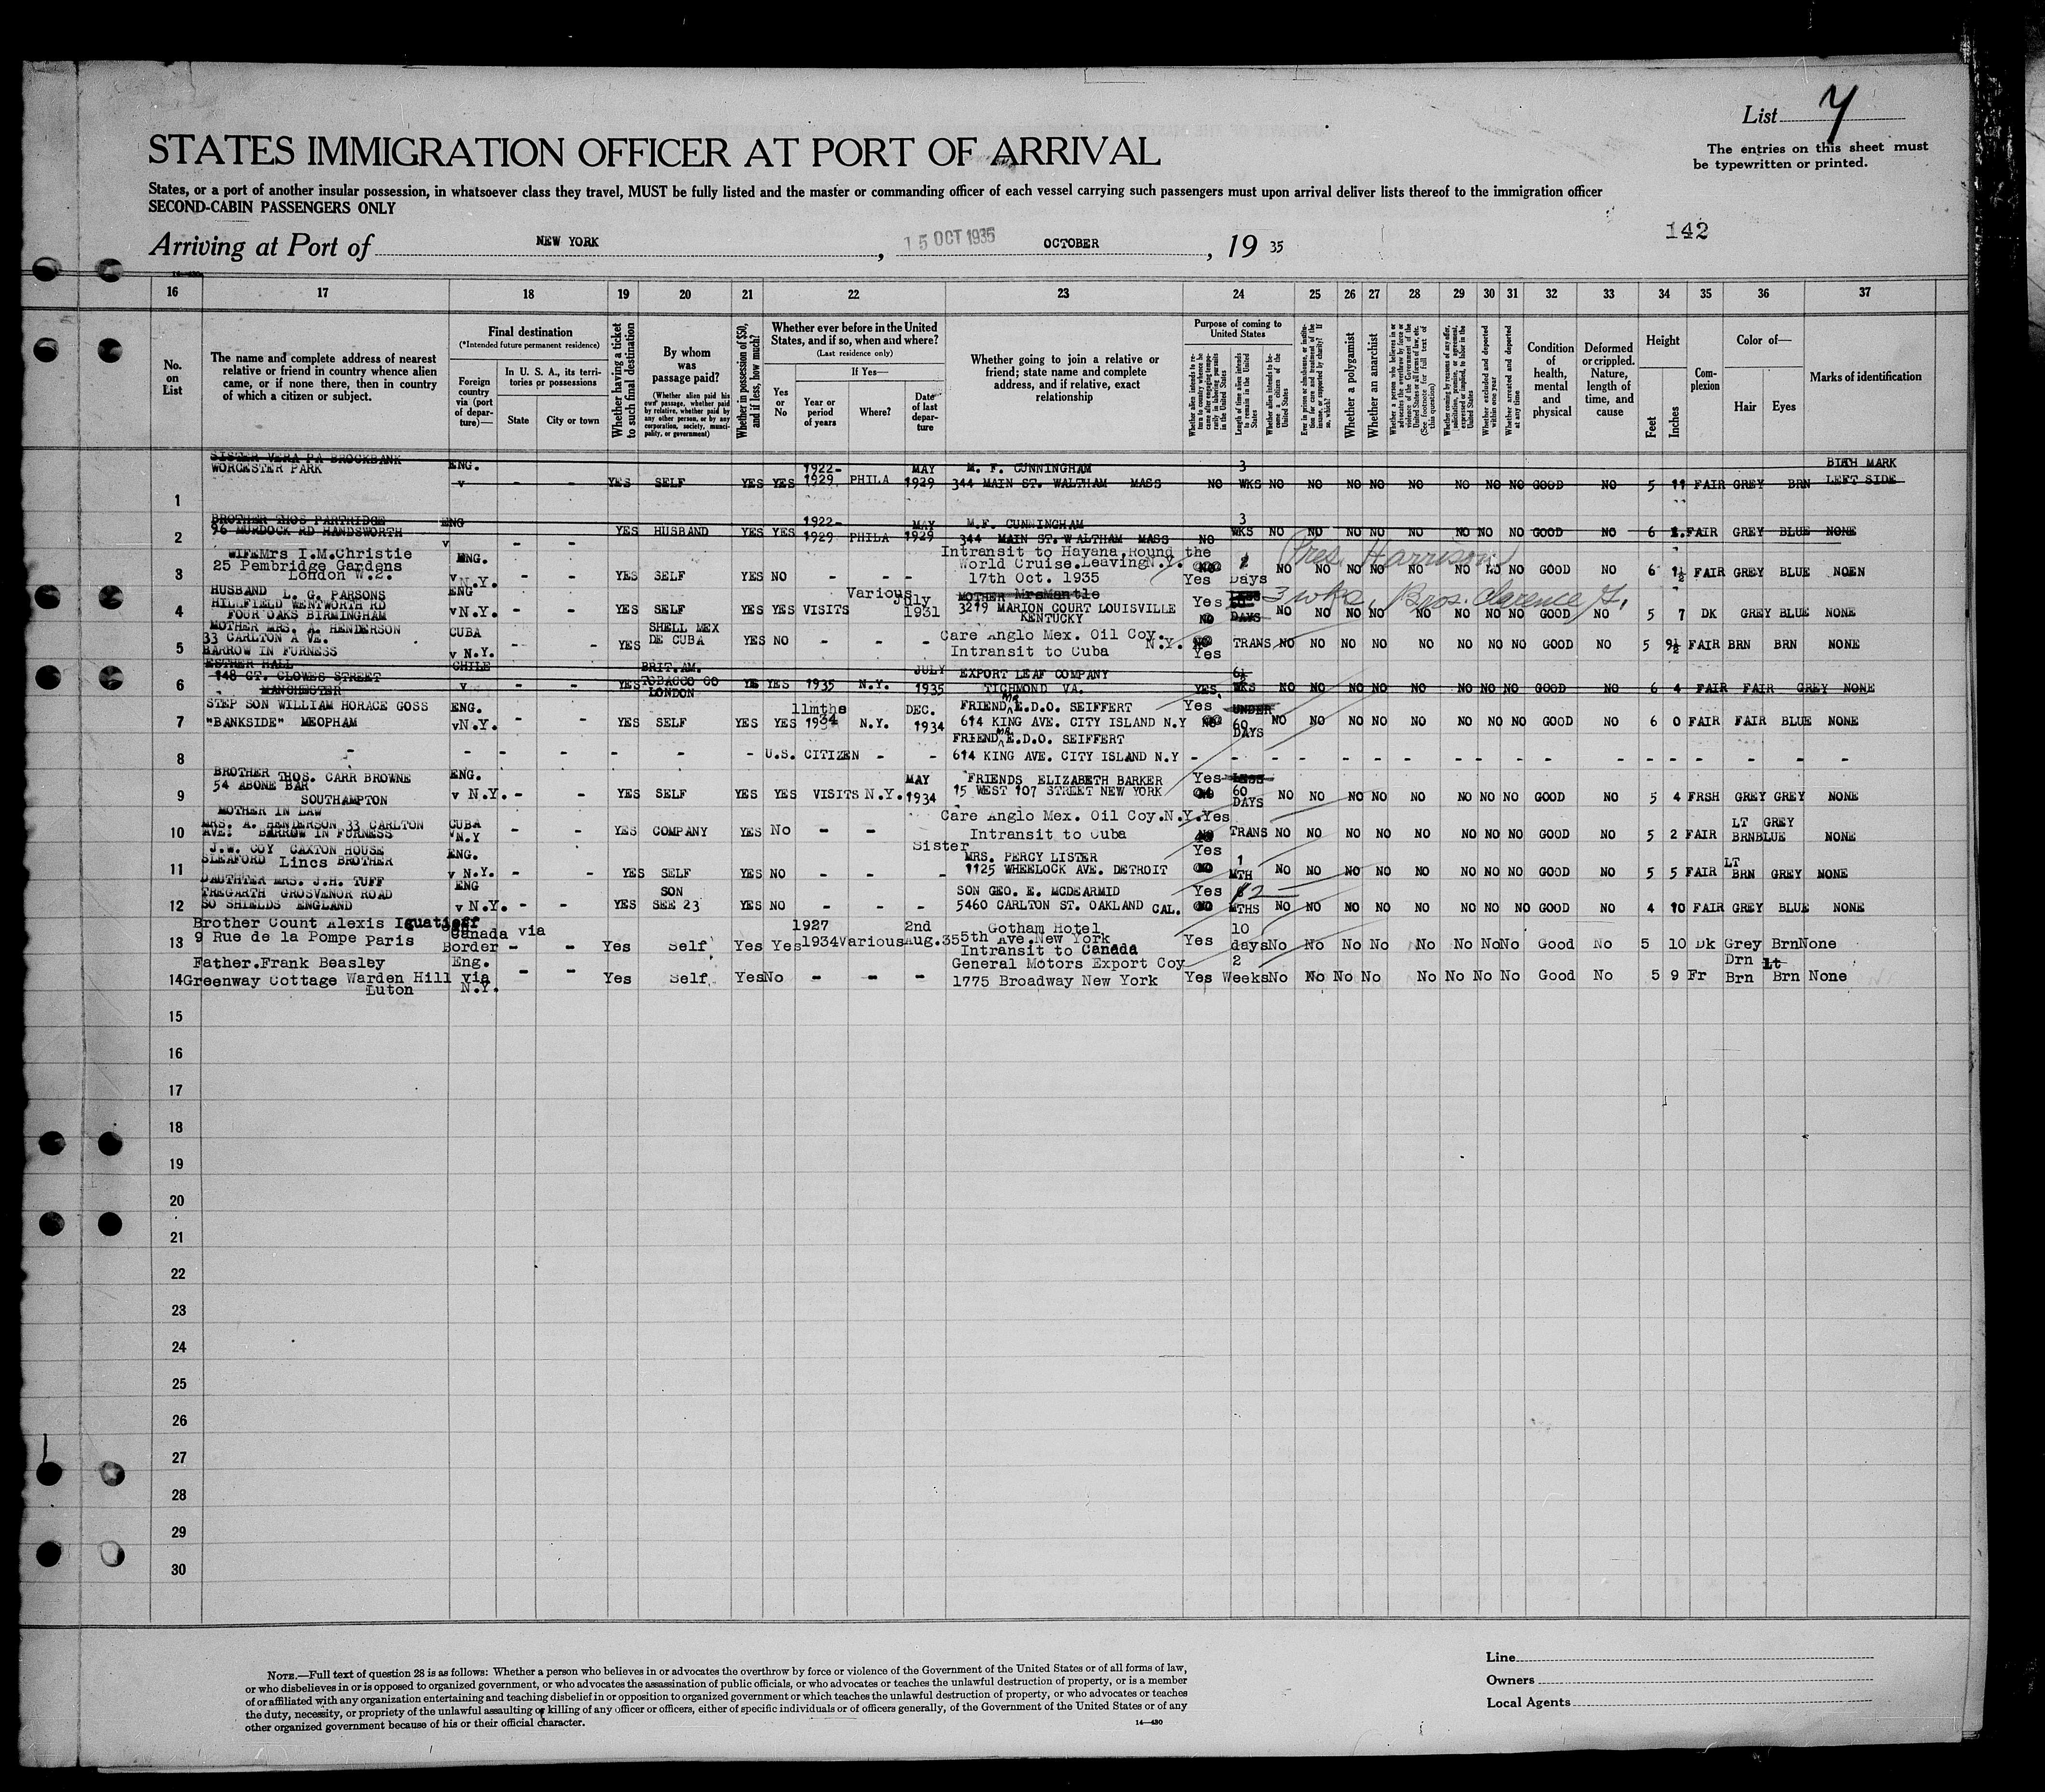 List 7
The entries on this sheet must
be typewritten or printed.
STATES IMMIGRATION OFFICER AT PORT OF ARRIVAL
States, or a port of another insular possession, in whatsoever class they travel, MUST be fully listed and the master or commanding officer of each vessel carrying such passengers must upon arrival deliver lists thereof to the immigration officer
SECOND-CABIN PASSENGERS ONLY
142
Arriving at Port of NEW YORK, 15 OCT 1935 OCTOBER, 19 35
16 17 18 19 20 21 22 23 24 25 26 27 28 29 30 31 32 33 34 35 36 37
No. on List
The name and complete address of nearest relative or friend in country whence alien came, or if none there, then in country of which a citizen or subject.
Final destination
(*Intended future permanent residence)
Foreign country via (port of departure)—
In U. S. A., its territories or possessions
State City or town
Whether having a ticket to such final destination
By whom was passage paid?
(Whether alien paid his own passage, whether paid by relative, whether paid by any other person, or by any corporation, society, municipality, or government)
Whether in possession of $50, and if less, how much?
Whether ever before in the United States, and if so, when and where?
(Last residence only)
Yes or No
If Yes—
Year or period of years
Where?
Date of last departure
Whether going to join a relative or friend; state name and complete address, and if relative, exact relationship
Purpose of coming to United States
Whether alien intends to return to country whence he came after engaging temporarily in laboring pursuits in the United States
Length of time alien intends to remain in the United States
Whether alien intends to become a citizen of the United States
Ever in prison or almshouse, or institution for care and treatment of the insane, or supported by charity? If so, which?
Whether a polygamist
Whether an anarchist
Whether a person who believes in or advocates the overthrow by force or violence of the Government of the United States or all forms of law, etc. (See footnote for full text of this question)
Whether coming by reasons of any offer, solicitation, promise, or agreement, expressed or implied, to labor in the United States
Whether excluded and deported within one year
Whether arrested and deported at any time
Condition of health, mental and physical
Deformed or crippled. Nature, length of time, and cause
Height
Feet Inches
Complexion
Color of—
Hair Eyes
Marks of identification
SISTER VERA PA BROCKBANK
WORCESTER PARK ENG. 1922- MAY M. F. CUNNINGHAM 3 BIRTH MARK
1 v - - YES SELF YES YES 1929 PHILA 1929 344 MAIN ST. WALTHAM MASS NO WKS NO NO NO NO NO NO NO NO GOOD NO 5 11 FAIR GREY BRN LEFT SIDE
BROTHER THOS PARTRIDGE ENG 1922- MAY M.F. CUNNINGHAM 3
2 96 MURDOCK RD HANDSWORTH v - - YES HUSBAND YES YES 1929 PHILA 1929 344 MAIN ST. WALTHAM MASS NO WKS NO NO NO NO NO NO NO NO GOOD NO 6 FAIR GREY BLUE NONE
WIFE Mrs I.M.Christie ENG. Intransit to Havana, Round the
25 Pembridge Gardens World Cruise. Leaving N.Y. Pres. Harrison
3 London W.2. v N.Y. - - YES SELF YES NO - - - 17th Oct. 1935 NO Yes Days NO NO NO NO NO NO NO NO GOOD NO 6 1½ FAIR GREY BLUE NOEN
HUSBAND L. G. PARSONS ENG Various July MOTHER Mrs Mantle 3 wks. Bros. Clarence G.
4 HILLFIELD WENTWORTH RD v N.Y. - - YES SELF YES YES VISITS 1931 3219 MARION COURT LOUISVILLE Yes
FOUR OAKS BIRMINGHAM KENTUCKY NO DAYS NO NO NO NO NO NO NO NO GOOD NO 5 7 DK GREY BLUE NONE
MOTHER MRS. A. HENDERSON CUBA SHELL MEX
5 33 CARLTON A VE. - - YES DE CUBA YES NO - - - Care Anglo Mex. Oil Coy. N.Y. NO TRANS NO NO NO NO NO NO NO NO GOOD NO 5 9½ FAIR BRN BRN NONE
BARROW IN FURNESS v N.Y. Intransit to Cuba Yes
ESTHER HALL CHILE BRIT.AM. JULY EXPORT LEAF COMPANY 6½
6 148 GT. CLOWES STREET v - - YES TOBACCO CO YES YES 1935 N.Y. 1935 TICHMOND VA. YES. WKS NO NO NO NO NO NO NO NO GOOD NO 6 4 FAIR FAIR GREY NONE
MANCHESTER LONDON
STEP SON WILLIAM HORACE GOSS ENG. 11mths DEC. FRIEND MR. E.D.O. SEIFFERT Yes UNDER
7 "BANKSIDE" MEOPHAM v N.Y. - - YES SELF YES YES 1934 N.Y. 1934 614 KING AVE. CITY ISLAND N.Y NO 60 DAYS NO NO NO NO NO NO NO NO GOOD NO 6 0 FAIR FAIR BLUE NONE
FRIEND MR. E.D.O. SEIFFERT
8 - - - - - - - U.S. CITIZEN - - 614 KING AVE. CITY ISLAND N.Y - - - - - - - - - - - - - - - - - -
BROTHER THOS. CARR BROWNE ENG. MAY FRIENDS ELIZABETH BARKER Yes LESS
9 54 ABONE BAR v N.Y. - - YES SELF YES YES VISITS N.Y. 1934 15 WEST 107 STREET NEW YORK 60 DAYS NO NO NO NO NO NO NO NO GOOD NO 5 4 FRSH GREY GREY NONE
SOUTHAMPTON
MOTHER IN LAW Care Anglo Mex. Oil Coy.N.Y. Yes
10 MRS. A. HENDERSON 33 CARLTON CUBA - - YES COMPANY YES No - - Intransit to Cuba NO TRANS NO NO NO NO NO NO NO NO GOOD NO 5 2 FAIR LT BRN GREY BLUE NONE
AVE: BARROW IN FURNESS v N.Y
J.W. COY CAXTON HOUSE ENG. Sister MRS. PERCY LISTER Yes 1
11 SLEAFORD Lincs BROTHER v N.Y. - - YES SELF YES NO - - - 1125 WHEELOCK AVE. DETROIT NO MTH NO NO NO NO NO NO NO NO GOOD NO 5 5 FAIR LT BRN GREY NONE
DAUTHTER MRS. J.H. TUFF ENG SON SON GEO. E. MCDEARMID Yes 12
12 TREGARTH GROSVENOR ROAD v N.Y. - - YES SEE 23 YES NO - - - 5460 CARLTON ST. OAKLAND CAL. NO MTHS NO NO NO NO NO NO NO NO GOOD NO 4 10 FAIR GREY BLUE NONE
SO SHIELDS ENGLAND
Brother Count Alexis Iguatieff Canada via 1927 2nd Gotham Hotel 10
13 9 Rue de la Pompe Paris Border - - Yes Self Yes Yes 1934 Various Aug.35 5th Ave New York Yes days No No No No No No No No Good No 5 10 Dk Grey Brn None
Intransit to Canada
Father.Frank Beasley Eng. General Motors Export Coy 2 Drn Lt
14 Greenway Cottage Warden Hill via - - Yes Self Yes No - - - 1775 Broadway New York Yes Weeks No No No No No No No No Good No 5 9 Fr Brn Brn None
Luton N.Y.
15
16
17
18
19
20
21
22
23
24
25
26
27
28
29
30
NOTE.—Full text of question 28 is as follows: Whether a person who believes in or advocates the overthrow by force or violence of the Government of the United States or of all forms of law,
or who disbelieves in or is opposed to organized government, or who advocates the assassination of public officials, or who advocates or teaches the unlawful destruction of property, or is a member
of or affiliated with any organization entertaining and teaching disbelief in or opposition to organized government or which teaches the unlawful destruction of property, or who advocates or teaches
the duty, necessity, or propriety of the unlawful assaulting or killing of any officer or officers, either of specific individuals or of officers generally, of the Government of the United States or of any
other organized government because of his or their official character.
14—430
Line
Owners
Local Agents